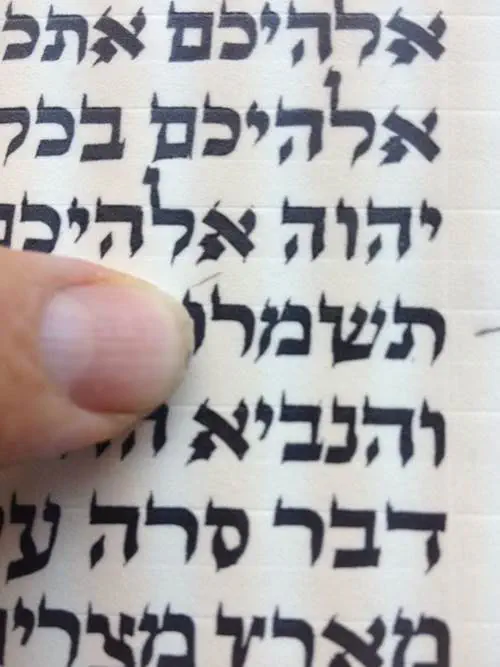 אלהיכם אתכ
אלהיכם בכל
יהוה אלהיכם
תשמרו
והנביא
דבר סרה
מארץ מצרים